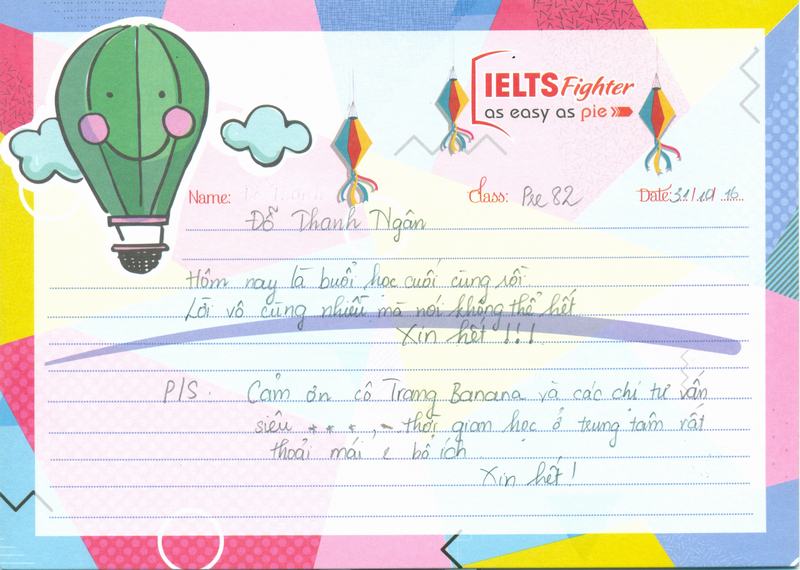 IELTS Fighter
as easy as pie
Name: Đỗ Thanh Ngân
Class: Pre 82
Date: 31/10/.16...
Hôm nay là buổi học cuối cùng rồi
Lời vô cùng nhiều mà nói không thể hết
Xin hết !!!
P/S. Cảm ơn cô Trang Banana và các chị tư vấn
siêu * * * , thời gian học ở trung tâm rất
thoải mái & bổ ích
Xin hết !